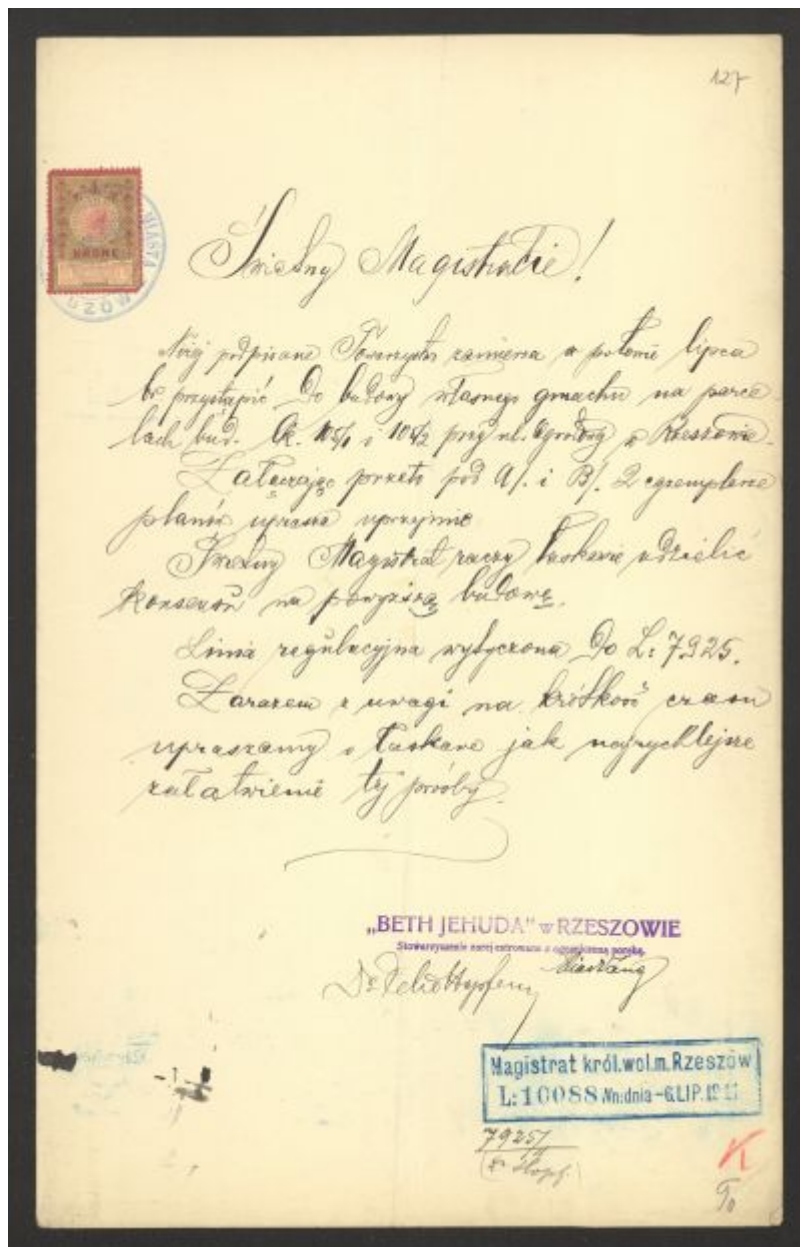 127
KRONE
MIASTA
Świetny Magistracie!
Niżej podpisane Towarzystwo zamierza w połowie lipca
br przystąpić do budowy własnego gmachu na parce-
lach bud. lk. 105/1 i 105/2 przy ul. Ogrodowej w Rzeszowie.
Załączając przeto pod A/. i B/. 2 egzemplarze
planów uprasza uprzejmie
Świetny Magistrat raczy łaskawie udzielić
konsensu na powyższą budowę.
Linia regulacyjna wytyczona do L: 7925.
Zarazem z uwagi na krótkość czasu
upraszamy o łaskawe jak najrychlejsze
załatwienie tej prośby.
„BETH JEHUDA" w RZESZOWIE
Stowarzyszenie zarejestrowane z ograniczoną poręką.
Dr
Magistrat król.wol.m.Rzeszów
L:10088 Wn:dnia -6.LIP.1911
7925/11